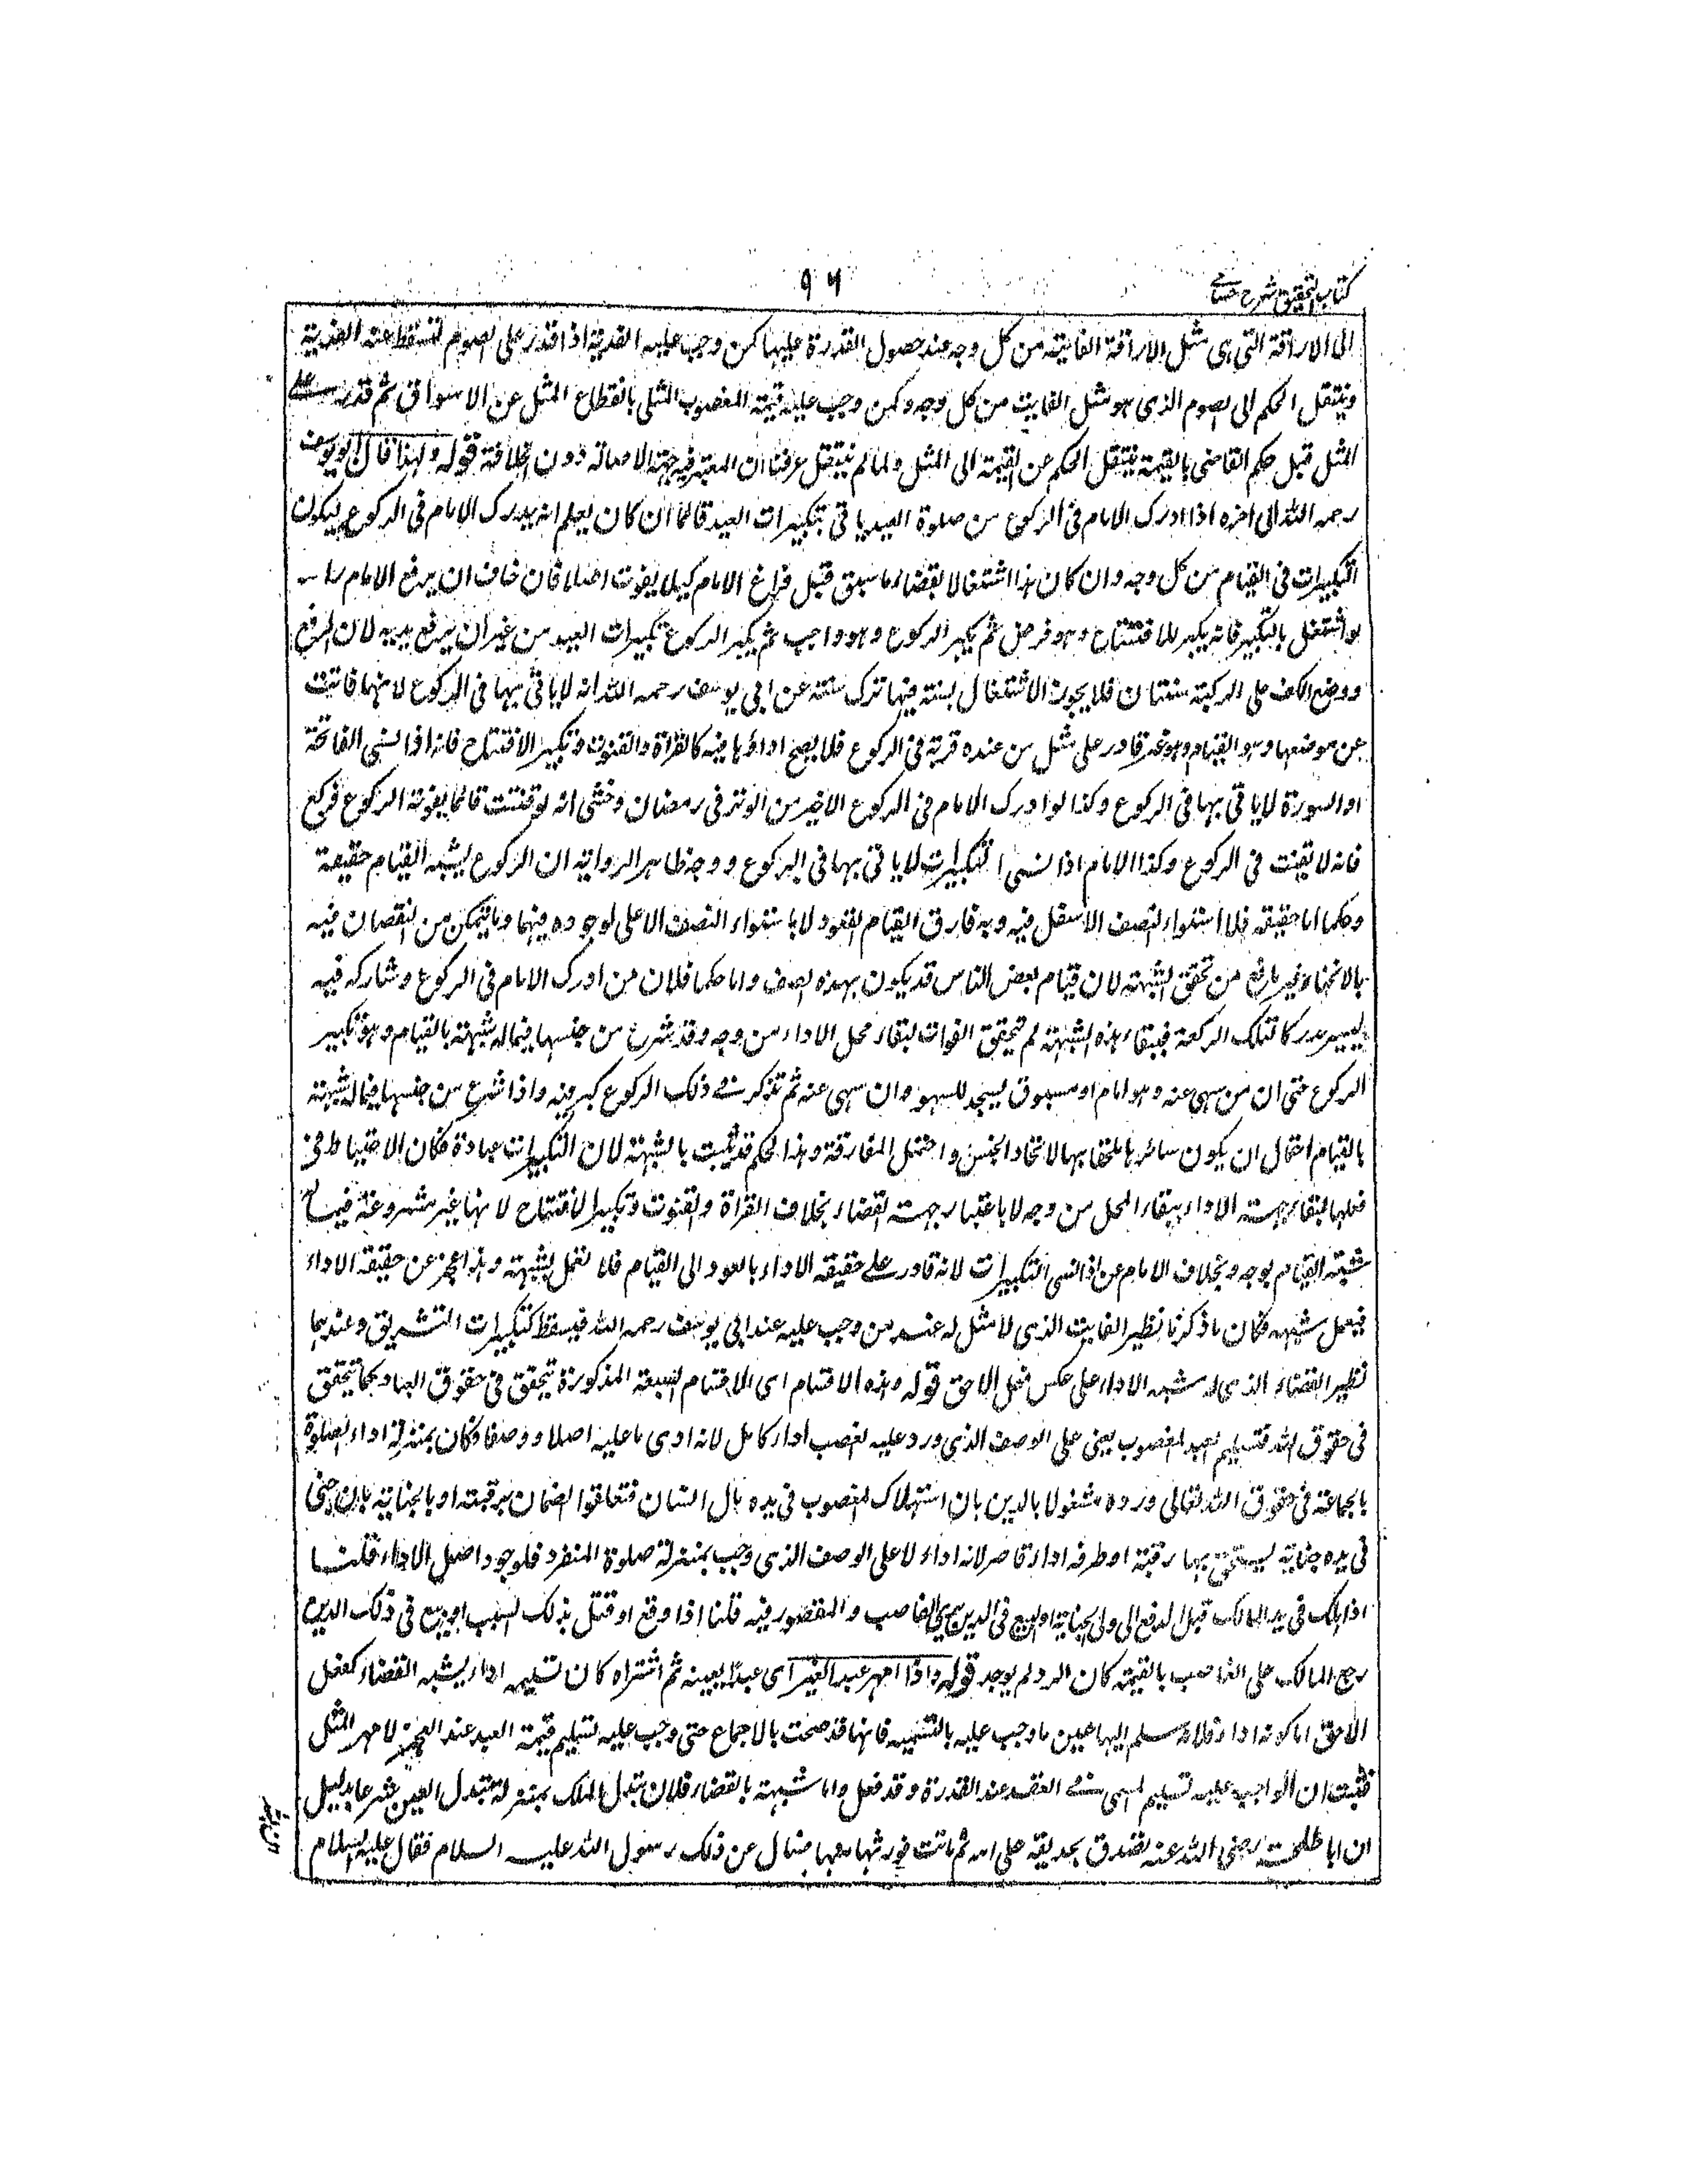 كتاب التحقيق شرح حسامي
٩٦
الى الاراقة التي هي مثل الاراقة الفائتة من كل وجه عند حصول القدرة عليها كمن وجب عليه الفدية اذا قدر على الصوم تسقط عنه الفدية
وينتقل الحكم الى الصوم الذي هو مثل الفايت من كل وجه وكمن وجب عليه قيمة المغصوب المثلى بانقطاع المثل عن الاسواق ثم قدر على
المثل قبل حكم القاضي بالقيمة ينتقل الحكم عن القيمة الى المثل ولما لم ينتقل عرفنا ان المعتبر فيه جهة الاصالة دون الخلافة قوله ولهذا قال ابو يوسف
رحمه الله الى اخره اذا ادرك الامام في الركوع من صلوة العيد ياتي بتكبيرات العيد قائما ان كان يعلم انه يدرك الامام في الركوع ليكون
التكبيرات في القيام من كل وجه وان كان هذا اشتغالا بقضاء ما سبق قبل فراغ الامام كيلا يفوت اصلا فان خاف ان يرفع الامام راسه
لو اشتغل بالتكبير فانه يكبر للافتتاح وهو فرض ثم يكبر الركوع وهو واجب ثم يكبر الركوع تكبيرات العيد من غير ان يرفع يديه لان الرفع
ووضع الكف على الركبة سنتان فلا يجوز الاشتغال بسنة فيها ترك سنة عن ابي يوسف رحمه الله انه لا ياتي بها في الركوع لانها فاتت
عن موضعها وهو القيام وهو غير قادر على مثل من عنده قربة في الركوع فلا يصح اداؤها فيه كالقراة والقنوت وتكبير الافتتاح فانه اذا نسي الفاتحة
او السورة لا ياتي بها في الركوع وكذا لو ادرك الامام في الركوع الاخير من الوتر في رمضان وخشي انه لو قنت قائما يفوته الركوع فركع
فانه لا يقنت في الركوع وكذا الامام اذا نسي التكبيرات لا ياتي بها في الركوع ووجه ظاهر الرواية ان الركوع يشبه القيام حقيقة
وحكما اما حقيقة فلاستواء النصف الاسفل فيه وبه فارق القيام القعود لا باستواء النصف الاعلى لوجوده فيهما وما يتمكن من النقصان فيه
بالانحناء غير مانع من تحقق الشبهة لان قيام بعض الناس قد يكون بهذه الصف واما حكما فلان من ادرك الامام في الركوع وشاركه فيه
يصير مدركا لتلك الركعة فببقاء هذه الشبهة لم تتحقق الفوات لبقاء محل الاداء من وجه وقد شرع من جنسها فيما له شبهة بالقيام وهو تكبير
الركوع حتى ان من سهى عنه وهو امام او مسبوق يسجد للسهو وان سهى عنه ثم تذكر في ذلك الركوع كبر فيه واذا شرع من جنسها فيما له شبهة
بالقيام احتمل ان يكون سائرها ملحقا بها لاتحاد الجنس واحتمل المفارقة وهذا الحكم قد يثبت بالشبهة لان التكبيرات عبادة فكان الاحتياط في
فعلها لبقاء جهة الاداء ببقاء المحل من وجه لا باعتبار جهة القضاء بخلاف القراة والقنوت وتكبير الافتتاح لانها غير مشروعة فيما له
شبهة القيام بوجه وبخلاف الامام عن اذا نسي التكبيرات لانه قادر على حقيقة الاداء بالعود الى القيام فلا نعمل بشبهة وهذا عجز عن حقيقة الاداء
فيعمل بشبهه فكان ما ذكرنا نظير الفايت الذي لا مثل له عند من وجب عليه عند ابي يوسف رحمه الله فيسقط كتكبيرات التشريق وعندهما
نظير القضاء الذي له شبه الاداء على عكس فعل اللاحق قوله وهذه الاقسام اى الاقسام السبعة المذكورة تتحقق في حقوق العباد كما تتحقق
في حقوق الله فتسليم العبد المغصوب يعني على الوصف الذي ورد عليه الغصب اداء كامل لانه ادى ما عليه اصلا ووصفا فكان بمنزلة اداء الصلوة
بالجماعة في حقوق الله تعالى ورده مشغولا بالدين بان استهلاك المغصوب في يده مال انسان فتعلقوا الضمان برقبته او بالجناية بان جنى
في يده جناية يستحق بها رقبته او طرفه اداء قاصر لانه اداء لا على الوصف الذي وجب بمنزلة صلوة المنفرد فلوجود اصل الاداء قلنا
اذا هلك في يد المالك قبل الدفع الى ولي الجناية او البيع في الدين برئ الغاصب والمقصور فيه قلنا اذا دفع او قتل بذلك السبب او بيع في ذلك الدين
رجع المالك على الغاصب بالقيمة كان الرد لم يوجد قوله واذا امهر عبد الغير اى عبدا بعينه ثم اشتراه كان تسليمه اداء يشبه القضاء كفعل
اللاحق اما كونه اداء فلانه سلم اليها عين ما وجب عليه بالتسمية فانها قد صحت بالاجماع حتى وجب عليه تسليم قيمة العبد عند العجز لا مهر المثل
فثبت ان الواجب عليه تسليم المسمى في العقد عند القدرة وقد فعل واما شبهة بالقضاء فلان تبدل الملك بمنزلة تبدل العين شرعا بدليل
ان ابا طلحة رضي الله عنه تصدق بحديقة على امه ثم ماتت فورثها منها فسال عن ذلك رسول الله عليه السلام فقال عليه السلام